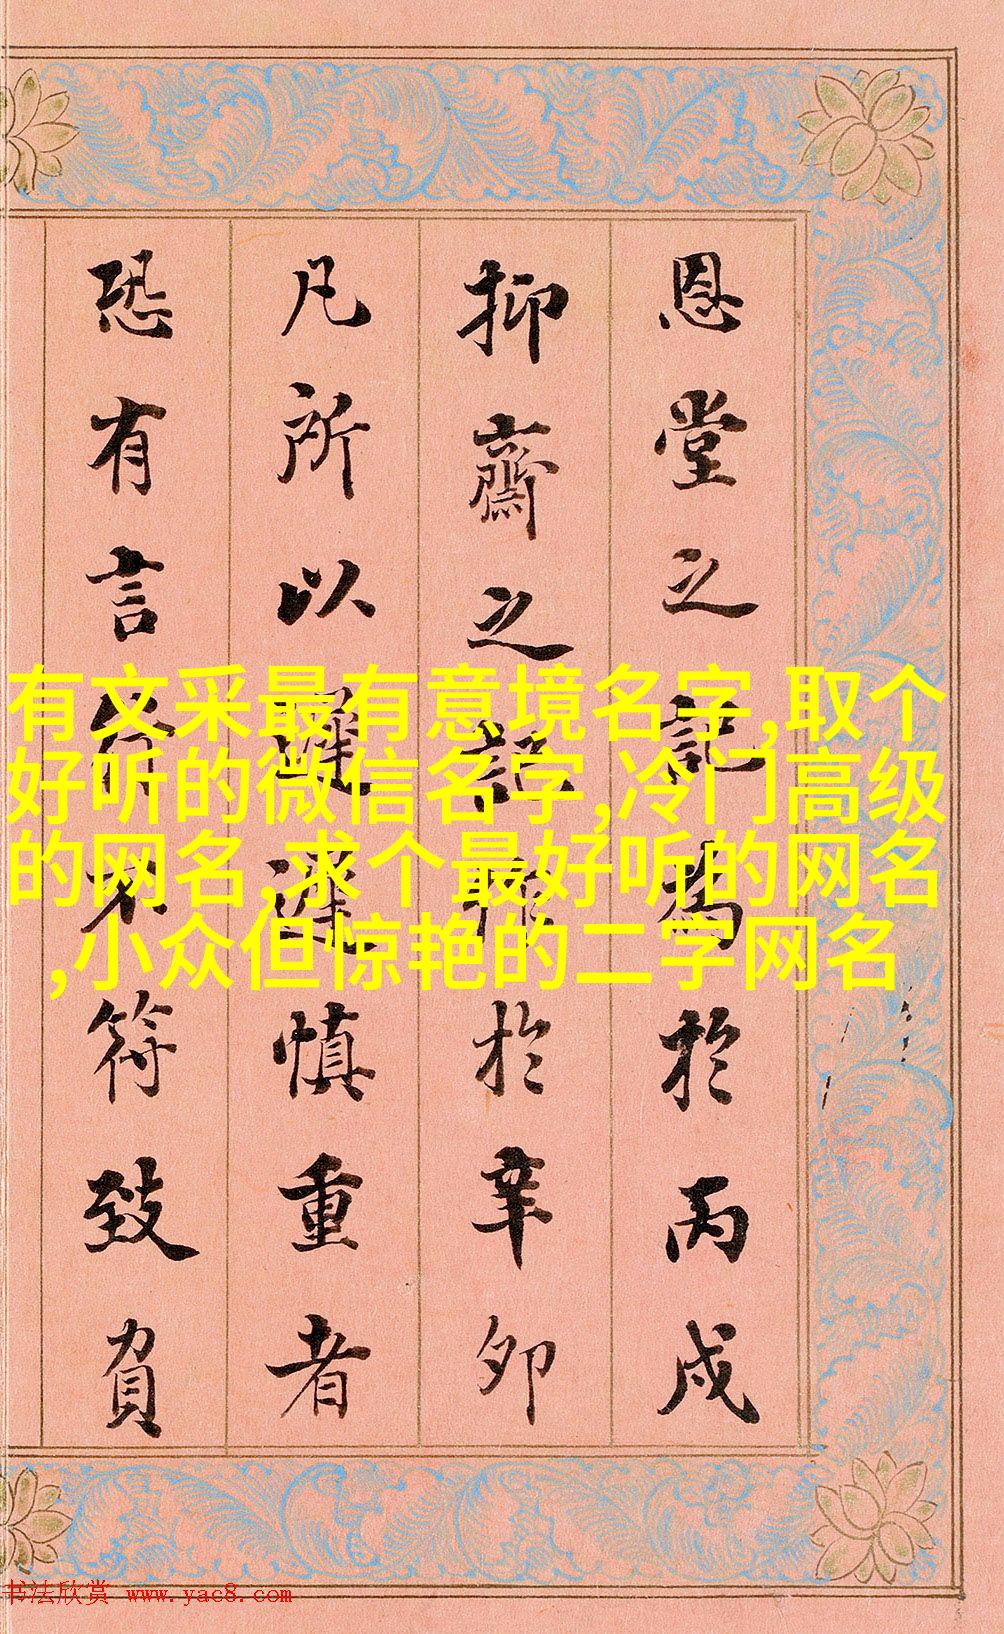 恩堂之記為於丙戌
抑齋之記作於辛卯
凡所以遲遲慎重者
恐有言行不符致負
有文采最有意境名字,取个
好听的微信名字,冷门高级
的网名,求个最好听的网名
,小众但惊艳的二字网名
书法欣赏 www.yac8.com